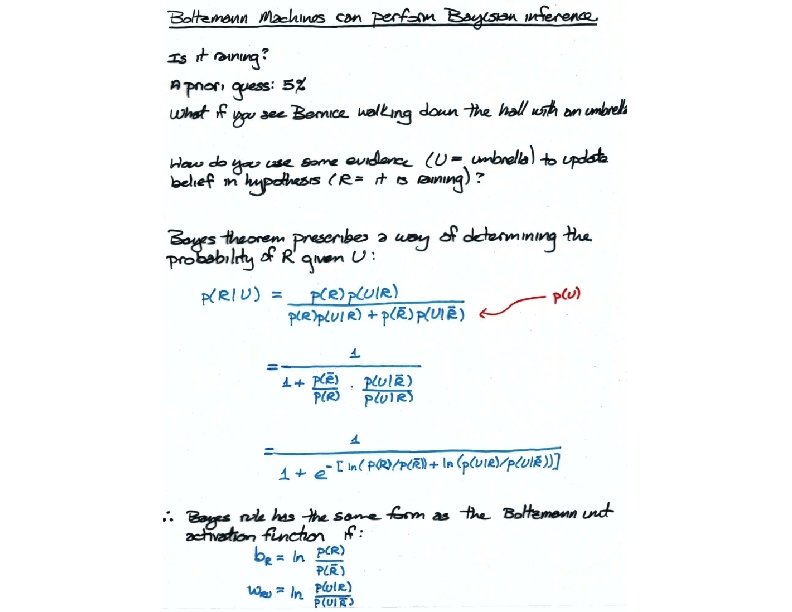 Boltzmann Machines can perform Bayesian inference
Is it raining?
A priori guess: 5%
What if you see Bernice walking down the hall with an umbrella
How do you use some evidence (U = umbrella) to update
belief in hypothesis (R = it is raining)?
Bayes theorem prescribes a way of determining the
probability of R given U:
p(R|U) = p(R)p(U|R) / p(R)p(U|R) + p(R̄)p(U|R̄) ← p(U)
= 1 / 1 + p(R̄)/p(R) · p(U|R̄)/p(U|R)
= 1 / 1 + e^-[ln(p(R)/p(R̄)) + ln(p(U|R)/p(U|R̄))]
∴ Bayes rule has the same form as the Boltzmann unit
activation function if:
b_R = ln p(R)/p(R̄)
w_RU = ln p(U|R)/p(U|R̄)